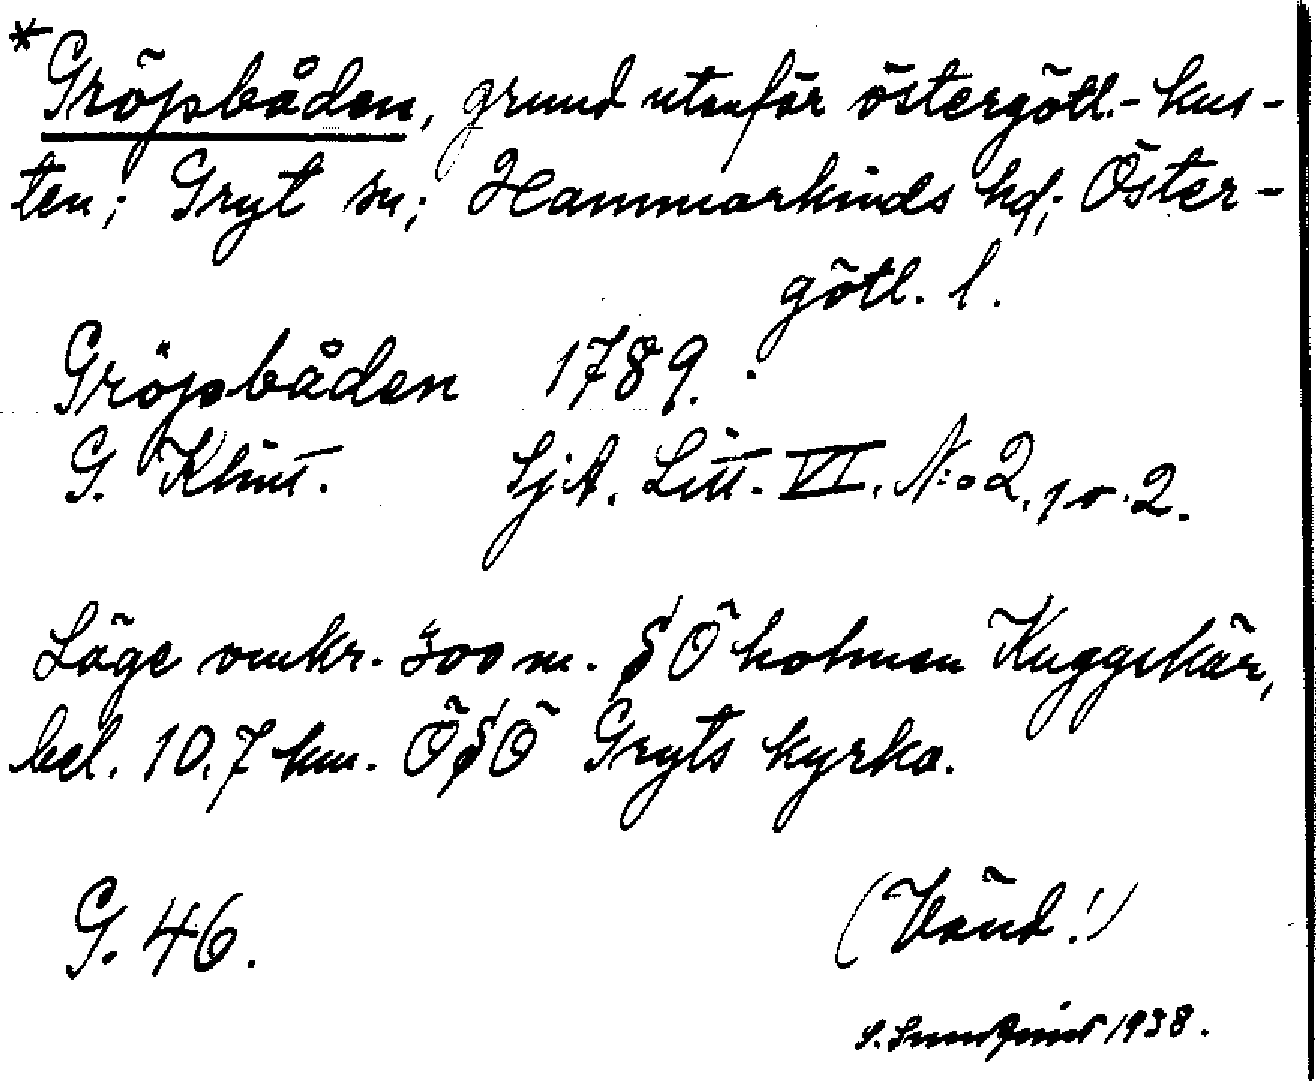 *Gröpbåden, grund utanför östergötl.-kus-
ten; Gryt sn; Hammarkinds hd; Öster-
götl. l.
Gröpbåden 1789.
G. Klint. SjA. Litt. VI. N:o 2, 1 o. 2.
Läge omkr. 300 m. SÖ holmen Kuggskär,
bel. 10,7 km. ÖSÖ Gryts kyrka.
G. 46.
(Vänd!)
S. Sundquist 1938.